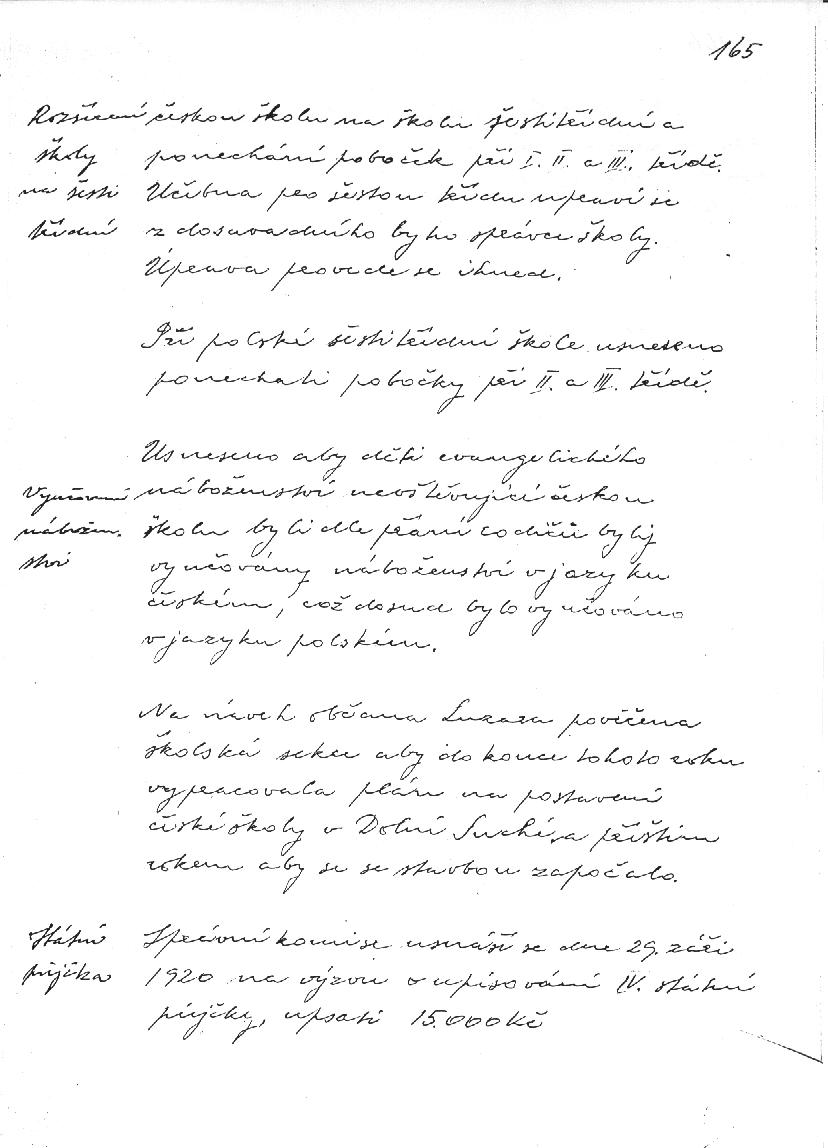 165
Rozšíření českou školu na školu šestitřídní a
školy ponechání poboček při I. II. a III. třídě.
na šesti Učebna pro šestou třídu upraví se
třídní z dosavadního bytu správce školy.
Úprava provede se ihned.
Při polské šestitřídní škole usneseno
ponechati pobočky při II. a III. třídě.
Usneseno aby děti evangelického
Vyučování náboženství navštěvující českou
nábožen. školu byli dle přání rodičů byly
ství vyučovány náboženství v jazyku
českém, což dosud bylo vyučováno
v jazyku polském.
Na návrh občana Lazara pověřena
školská sekce aby do konce tohoto roku
vypracovala plán na postavení
české školy v Dolní Suché, a příštím
rokem aby se se stavbou započalo.
Státní Správní komise usnáší se dne 29. září
půjčka 1920 na výzvu o upisování IV. státní
půjčky, upsati 15.000 Kč